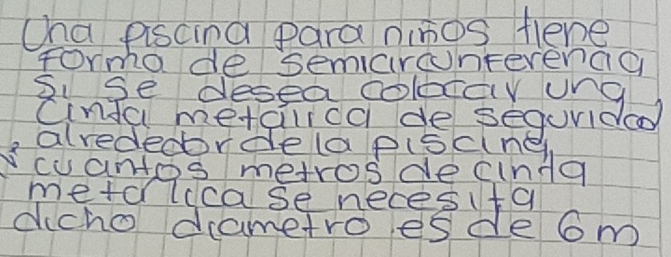 Una piscina para niños tiene
forma de semicircunferencia
Si se desea colocar una
cinta metalica de seguridad
alrededor de la piscina
¿cuantos metros de cinta
metalica se necesita
dicho diametro es de 6m